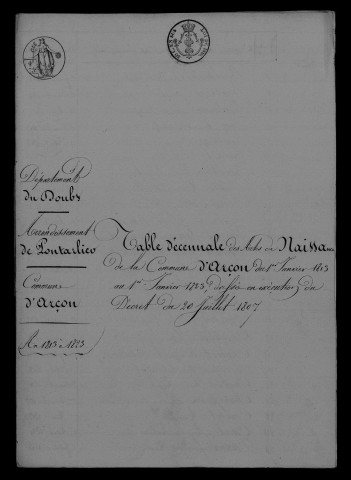 Département
du Doubs
Arrondissement
de Pontarlier
Commune
d'Arçon
An 1813 à 1823
Table décennale des Actes de Naissance
de la Commune d'Arçon du 1er Janvier 1813
au 1er Janvier 1823, dressée en exécution du
Décret du 20 Juillet 1807